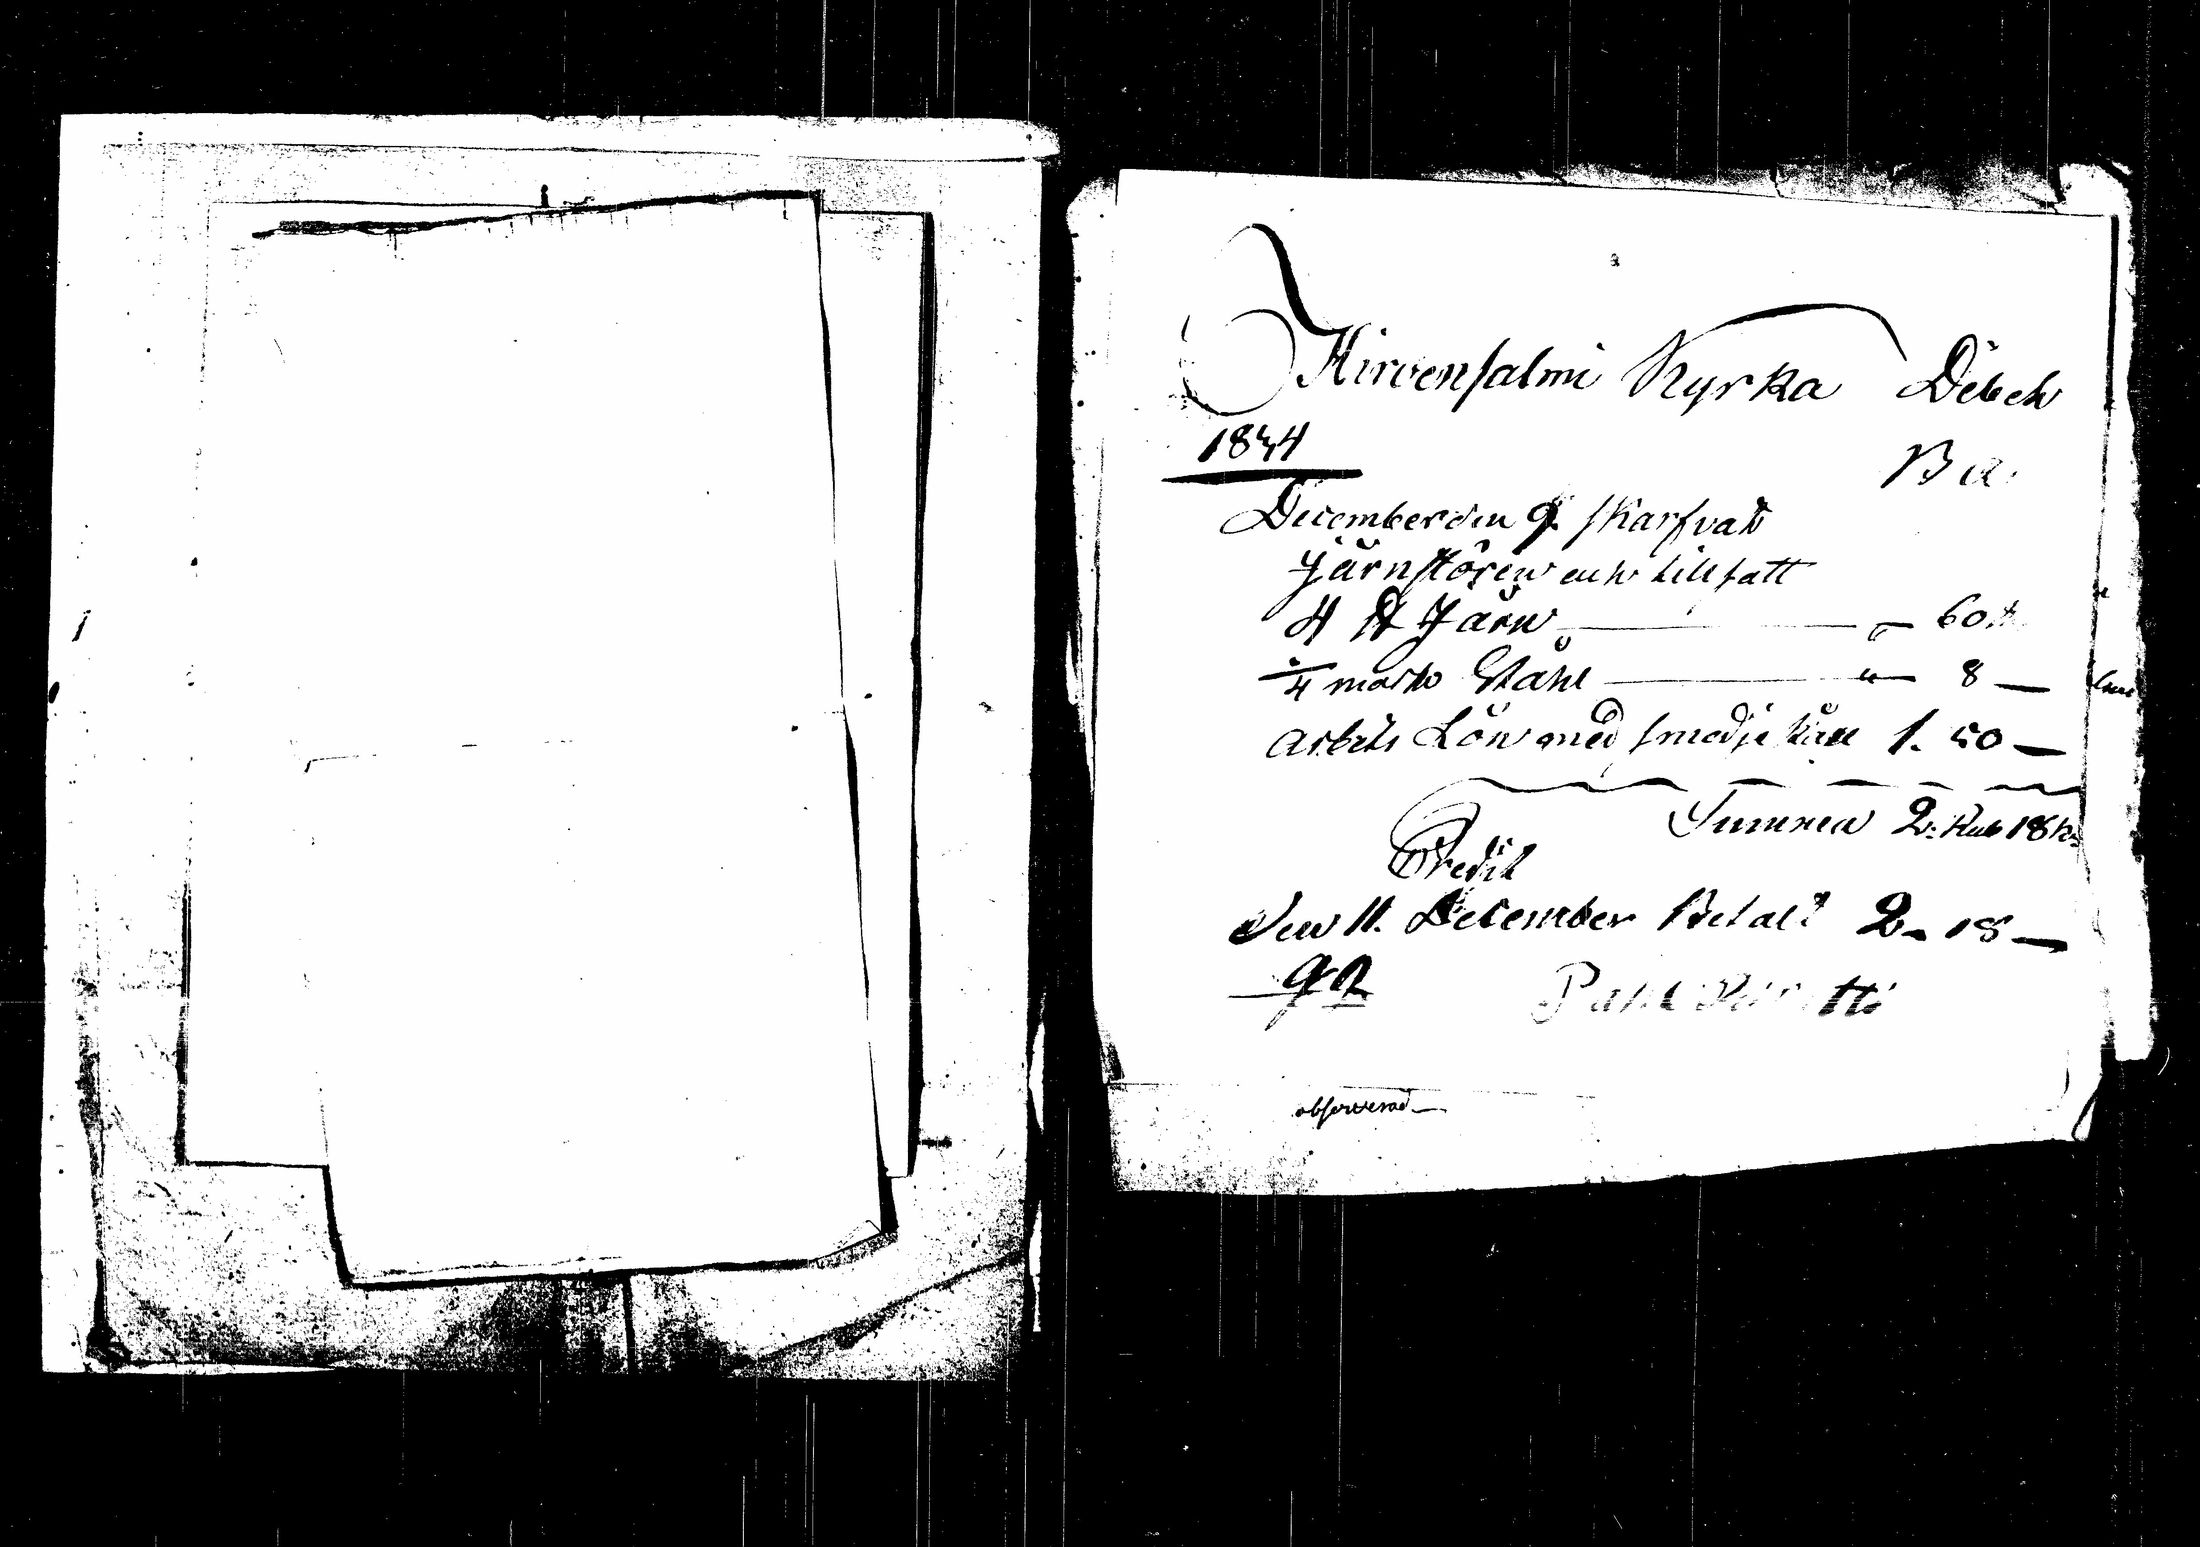 Hirvensalmi Kyrka Debet
1834
B a.
December den 9. skarfvat
Järnstören och tillsatt
4 ℔ Järn — " — 60 k
1/4 mark Stahl — " — 8 —
arbets Lön med smedje kåll 1. 50 —
Summa 2. Rub 18 k
Credit
Den 11. December Betalt 2 - 18 —
Pahl
observerad —